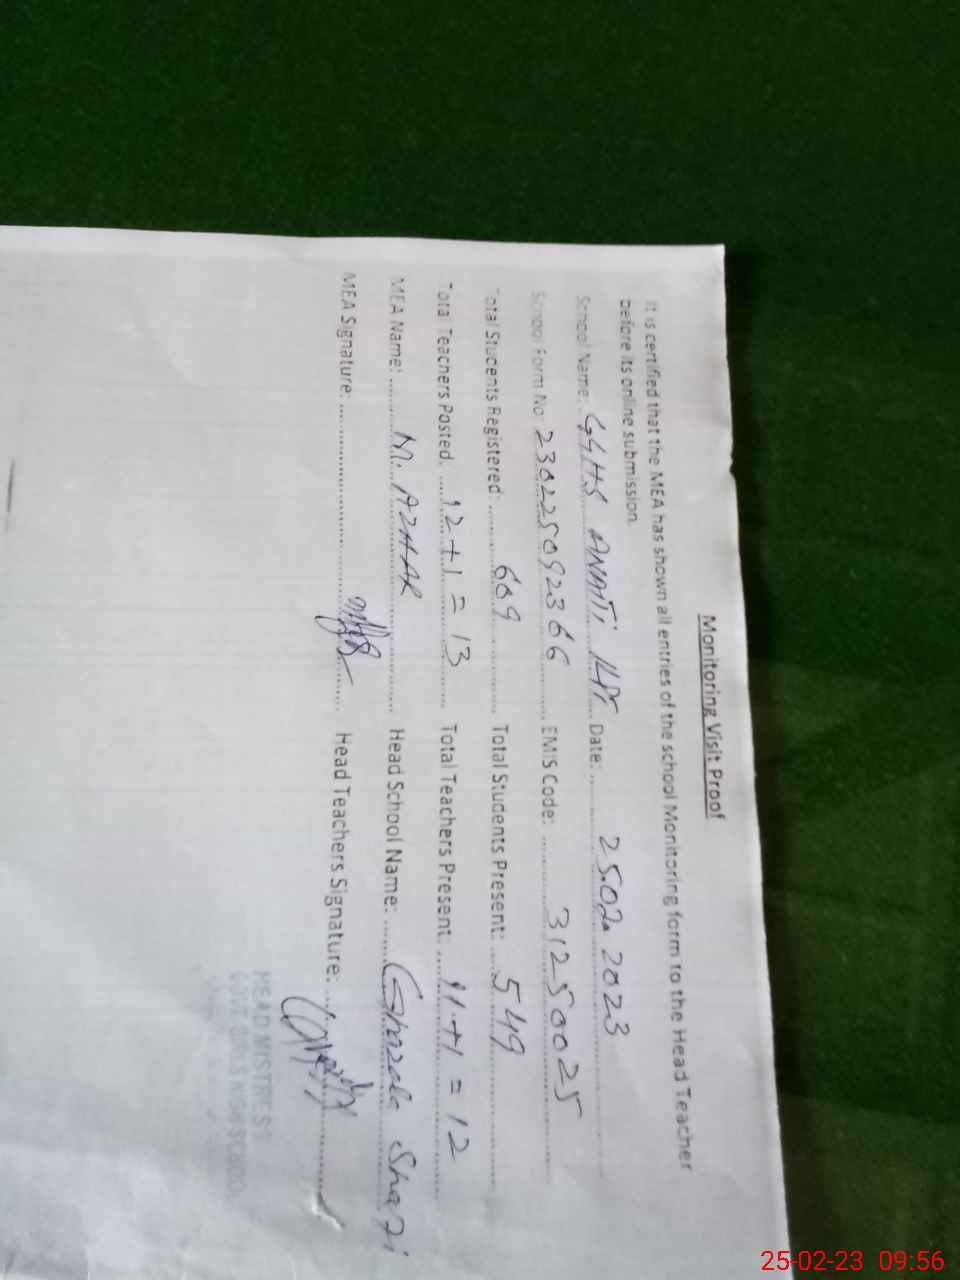 Monitoring Visit Proof
It is certified that the MEA has shown all entries of the school Monitoring form to the Head Teacher
before its online submission.
School Name: GGHS Date: 25.02.2023
School Form No 230225092366 EMIS Code: 31250025
Total Students Registered: 609 Total Students Present: 549
Total Teachers Posted: 12+1=13 Total Teachers Present: 11+1=12
MEA Name: M. AZHAR Head School Name: Ghazala
MEA Signature: Head Teachers Signature:
HEAD MISTRESS
GOVT. GIRLS HIGH SCHOOL
25-02-23 09:56